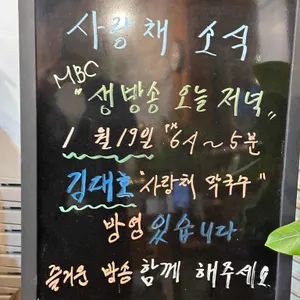 사랑채 소식
MBC
"생방송 오늘 저녁"
1월 19일 PM 6시~5분
김대호 "사랑채 막국수"
방영 있습니다
즐거운 방송 함께 해주세요